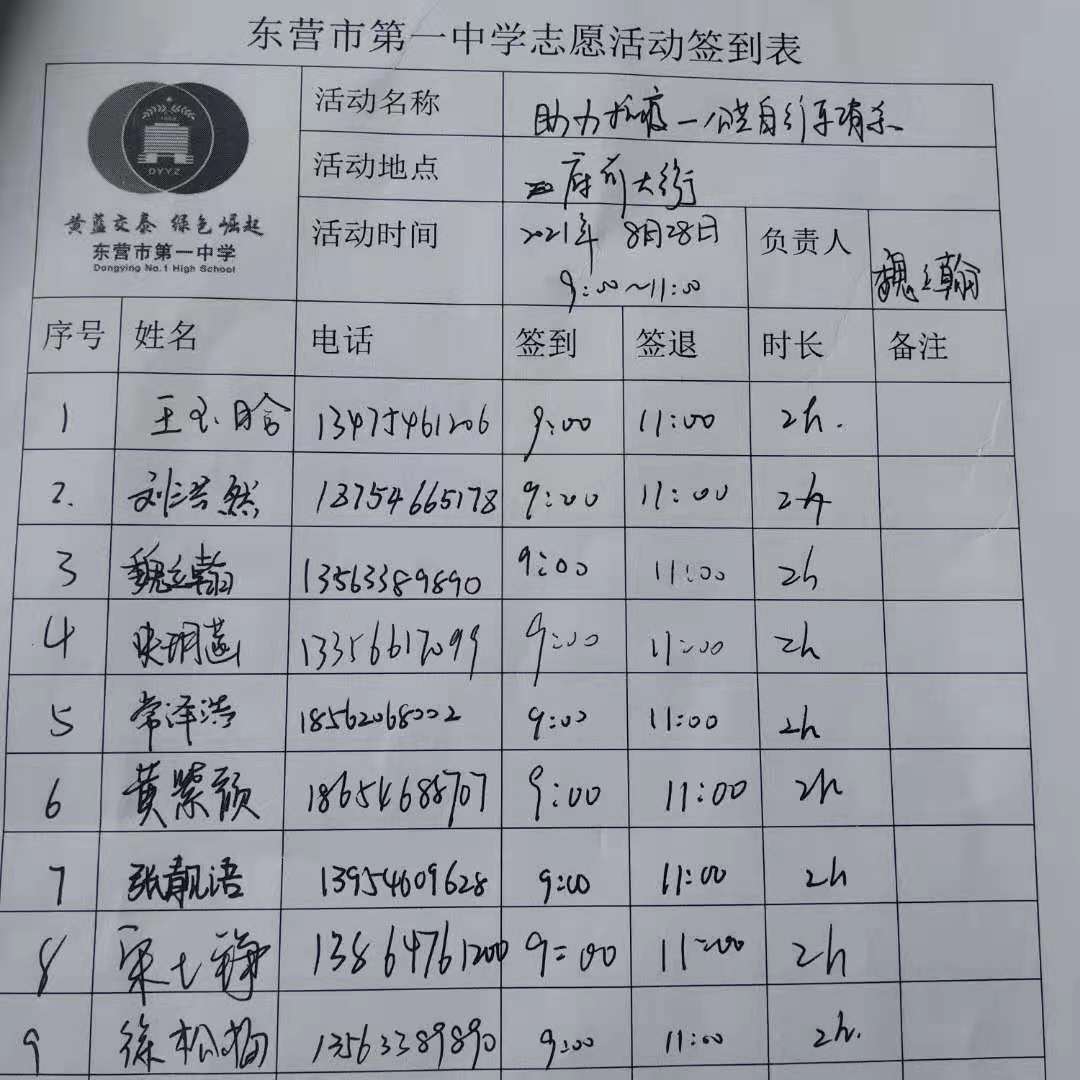 东营市第一中学志愿活动签到表
DYYZ
黄蓝交泰 绿色崛起
东营市第一中学
Dongying No.1 High School
活动名称 助力抗疫一公共自行车消杀
活动地点 府前大街
活动时间 2021年 8月28日 9:00~11:00 负责人 魏立翰
序号 姓名 电话 签到 签退 时长 备注
1 王玉晗 13475461206 9:00 11:00 2h.
2. 刘浩然 13754665178 9:00 11:00 2h
3 魏立翰 13563389890 9:00 11:00 2h
4 13356617099 9:00 11:00 2h
5 常泽浩 18562068002 9:00 11:00 2h
6 黄紫颜 18654688707 9:00 11:00 2h
7 张靓语 13954609628 9:00 11:00 2h
8 13864761200 9:00 11:00 2h
9 徐松梅 13563389890 9:00 11:00 2h.